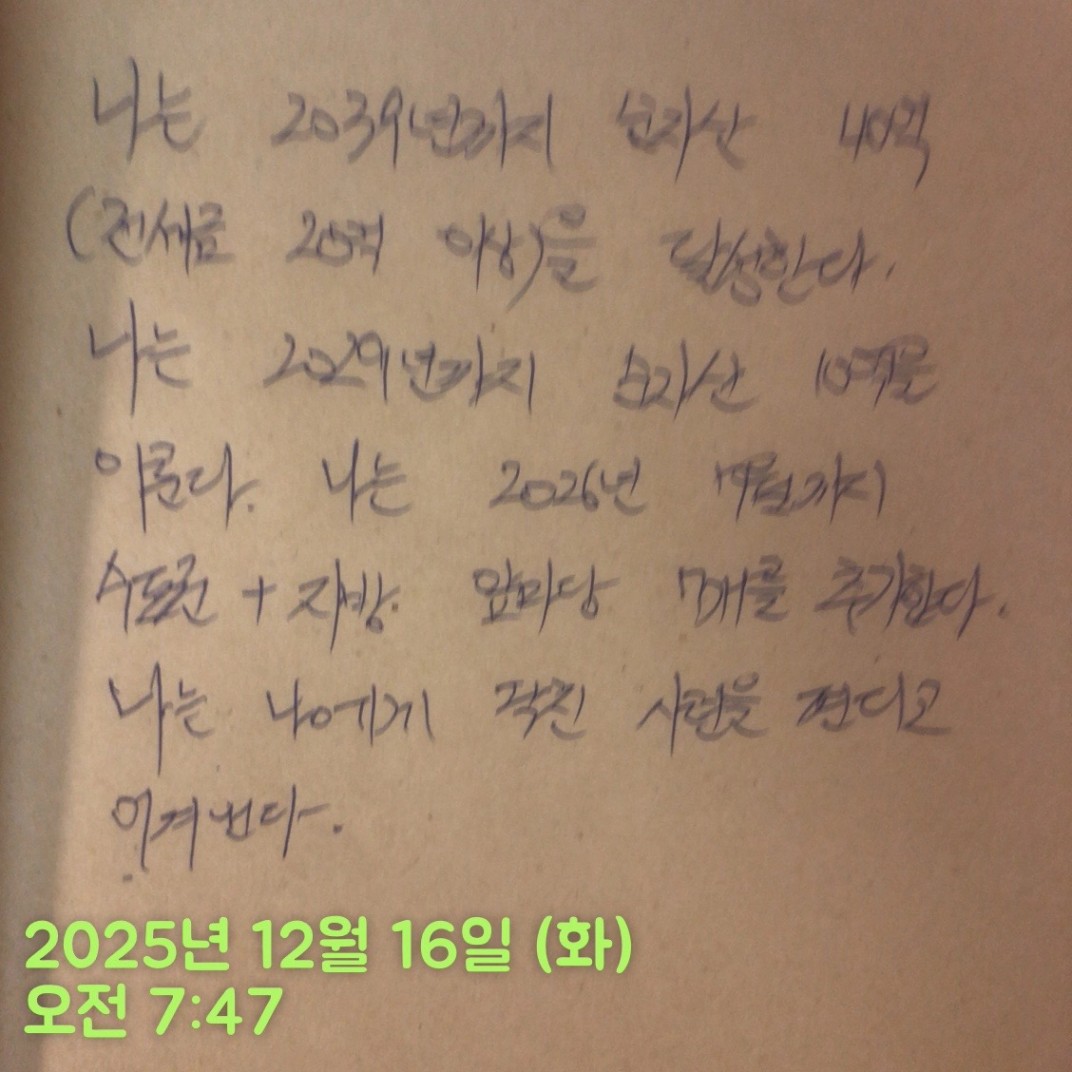 나는 2039년까지 순자산 40억
(전세금 20억 이상)을 달성한다.
나는 2029년까지 순자산 10억을
이룬다. 나는 2026년 까지
수도권 + 지방 앞마당 7개를 추가한다.
나는 나에게 닥친 시련을 견디고
이겨낸다.
2025년 12월 16일 (화)
오전 7:47